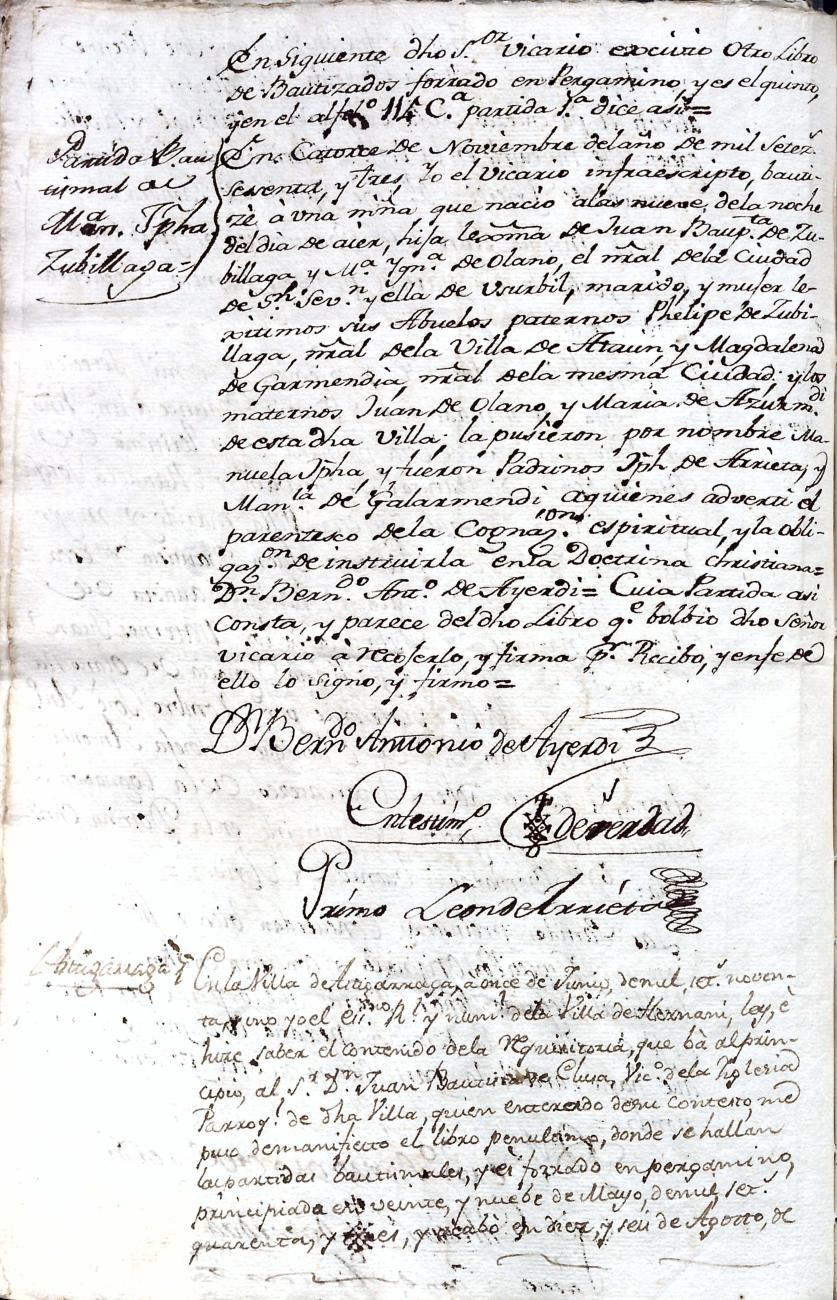 En Siguiente dho S.or Vicario exciuio Otro Libro
de Bautizados forrado en Pergamino, y es el quinto,
y en el al fol.o 114 C.a partida 1.a dice asi=
Partida Bau
tismal de
Man.a Jpha
Zubillaga=
En Catorce de Noviembre del año de mil Setez.s
sesenta, y tres, Yo el Vicario infraescripto, bauti-
zè à vna niña que naciò alas nueve, dela noche
del dia de aier, hija lexma de Juan Baup.ta de Zu-
billaga y M.a Ygn.a de Olano, el nral dela Ciudad
de S.n Sev.n y ella de Vsurbil, marido, y mujer le-
xitimos sus Abuelos paternos Phelipe de Zubi-
llaga, nral dela Villa de Ataun y Magdalena
de Garmendia, nral dela mesma Ciudad; y los
maternos Juan de Olano, y Maria de Azurm.di
de esta dha Villa; la pusieron por nombre Ma-
nuela Jpha, y fueron Padrinos Jph de Arrieta, y
Man.la de Galarmendi aquienes adverti el
parentesco dela Cognaz.on espiritual, y la obli-
gaz.on de instruirla en la Doctrina christiana=
D.n Bern.do Ant.o de Ayerdi= Cuia Partida asi
Consta, y parece del dho Libro q.e bolbio dho Señor
Vicario à recoserlo, y firma p.r Recibo; y en fe de
ello lo Signo, y firmo=
D.n Bern.do Antonio de Ayerdi
En testim.o de verdad
Primo Leon de Arrieta
Astigarraga
En la Villa de Astigarraga, à once de Junio, de mil, set.s noven-
ta, y uno yo el Ess.no R.l y num.l dela Villa de Hernani, ley, è
hice saber el contenido dela requisitoria, que bà al prin-
cipio, al S.r D.n Juan Bautista de Elusa, Vic.o dela Yglesia
Parroq.l de dha Villa, quien enterado de su contesto, me
puso demanifiesto el libro penultimo, donde se hallan
las partidas bautismales, y es forrado en pergamino,
principiada en veinte, y nuebe de Mayo, de mil, set.s
quarenta, y tres, y acabò en diez, y seis de Agosto, de